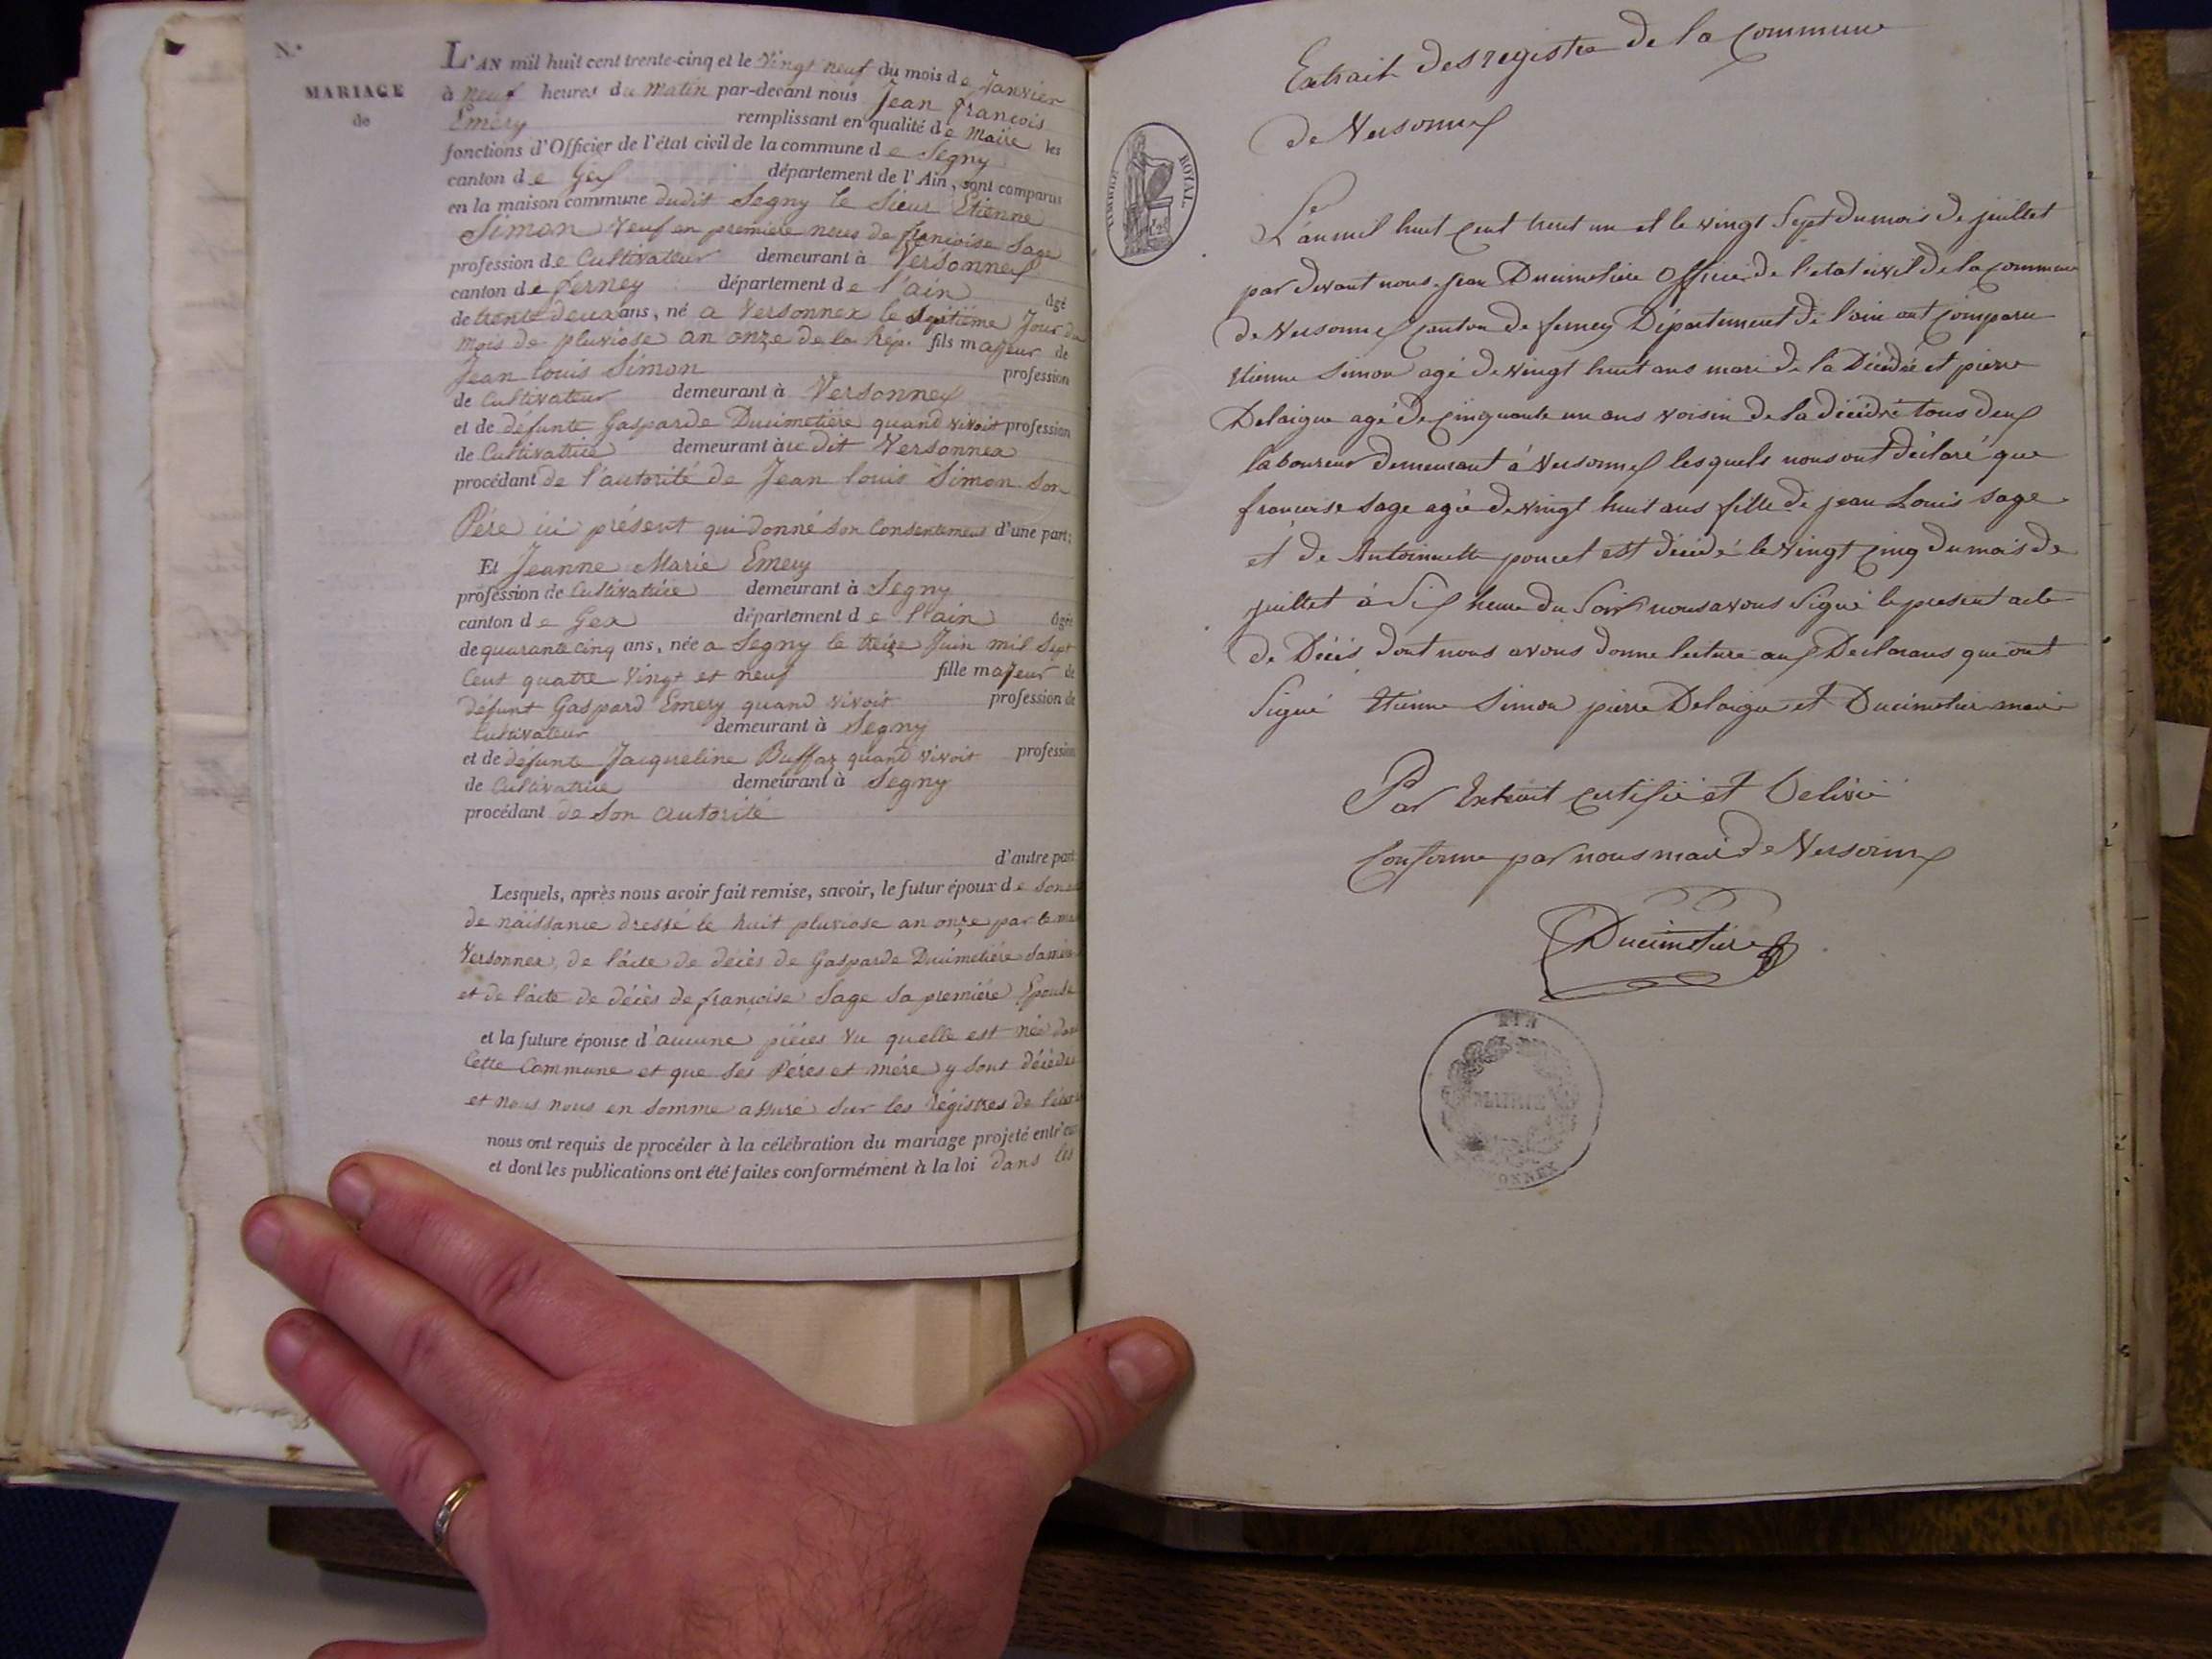 N.°
MARIAGE
de
L'AN mil huit cent trente-cinq et le Vingt neuf du mois de Janvier
à neuf heures du Matin par-devant nous Jean françois
Emery remplissant en qualité de Maire les
fonctions d'Officier de l'état civil de la commune de Segny
canton de Gex département de l'Ain, sont comparus
en la maison commune dudit Segny le Sieur Etienne
Simon Veuf en premiere noces de françoise Sage
profession de Cultivateur demeurant à Versonnex
canton de ferney département de l'ain âgé
de trente deux ans, né a Versonnex le Septième Jour du
mois de pluviose an onze de la Rép. fils majeur de
Jean louis Simon profession
de Cultivateur demeurant à Versonnex
et de défunte Gasparde Ducimetière quand vivoit profession
de Cultivatrice demeurant au dit Versonnex
procédant de l'autorité de Jean louis Simon Son
Père ici présent qui donné son Consentement d'une part;
Et Jeanne Marie Emery
profession de Cultivatrice demeurant à Segny
canton de Gex département de l'ain âgée
de quarante cinq ans, née a Segny le treize Juin mil Sept
Cent quatre Vingt et neuf fille majeur de
défunt Gaspard Emery quand vivoit profession de
Cultivateur demeurant à Segny
et de défunte Jacqueline Buffaz quand vivoit profession
de Cultivatrice demeurant à Segny
procédant de Son autorité
d'autre part
Lesquels, après nous avoir fait remise, savoir, le futur époux de Son
de naissance dressé le huit pluviose an onze par le
Versonnex, de l'acte de décès de Gasparde Ducimetière
et de l'acte de décès de françoise Sage Sa première Epouse
et la future épouse d'aucune pièces Vu quelle est née dans
Cette Commune et que Ses Pères et mère y Sont décèdés
et nous nous en Somme assuré Sur les régistres de
nous ont requis de procéder à la célébration du mariage projeté entr'eux
et dont les publications ont été faites conformément à la loi dans les
Extrait des registre de la Commune
de Versonnex
TIMBRE ROYAL
L'an mil huit cent trent un et le vingt Sept du mois de juillet
par devant nous jean Ducimetiere Officier de l'etat civil de la commune
de Versonnex canton de ferney Département de l'ain ont comparu
Etienne Simon agé de vingt huit ans mari de la Décédée et pierre
Delaigue agé de cinquante un ans voisin de la décédée tous deux
laboureur demeurant à Versonnex lesquels nous ont déclaré que
francoise Sage agée de vingt huit ans fille de jean Louis Sage
et de Antoinette poncet est décédé le vingt cinq du mois de
juillet à Six heure du Soir nous avons Signé le present acte
de Décès dont nous avons donne lecture aux Declarans qui ont
Signé Etienne Simon pierre Delaigue et Ducimetier maire
Par Extrait certifié et Delivré
Conforme par nous maire de Versonnex
Ducimetiere
AIN
MAIRIE